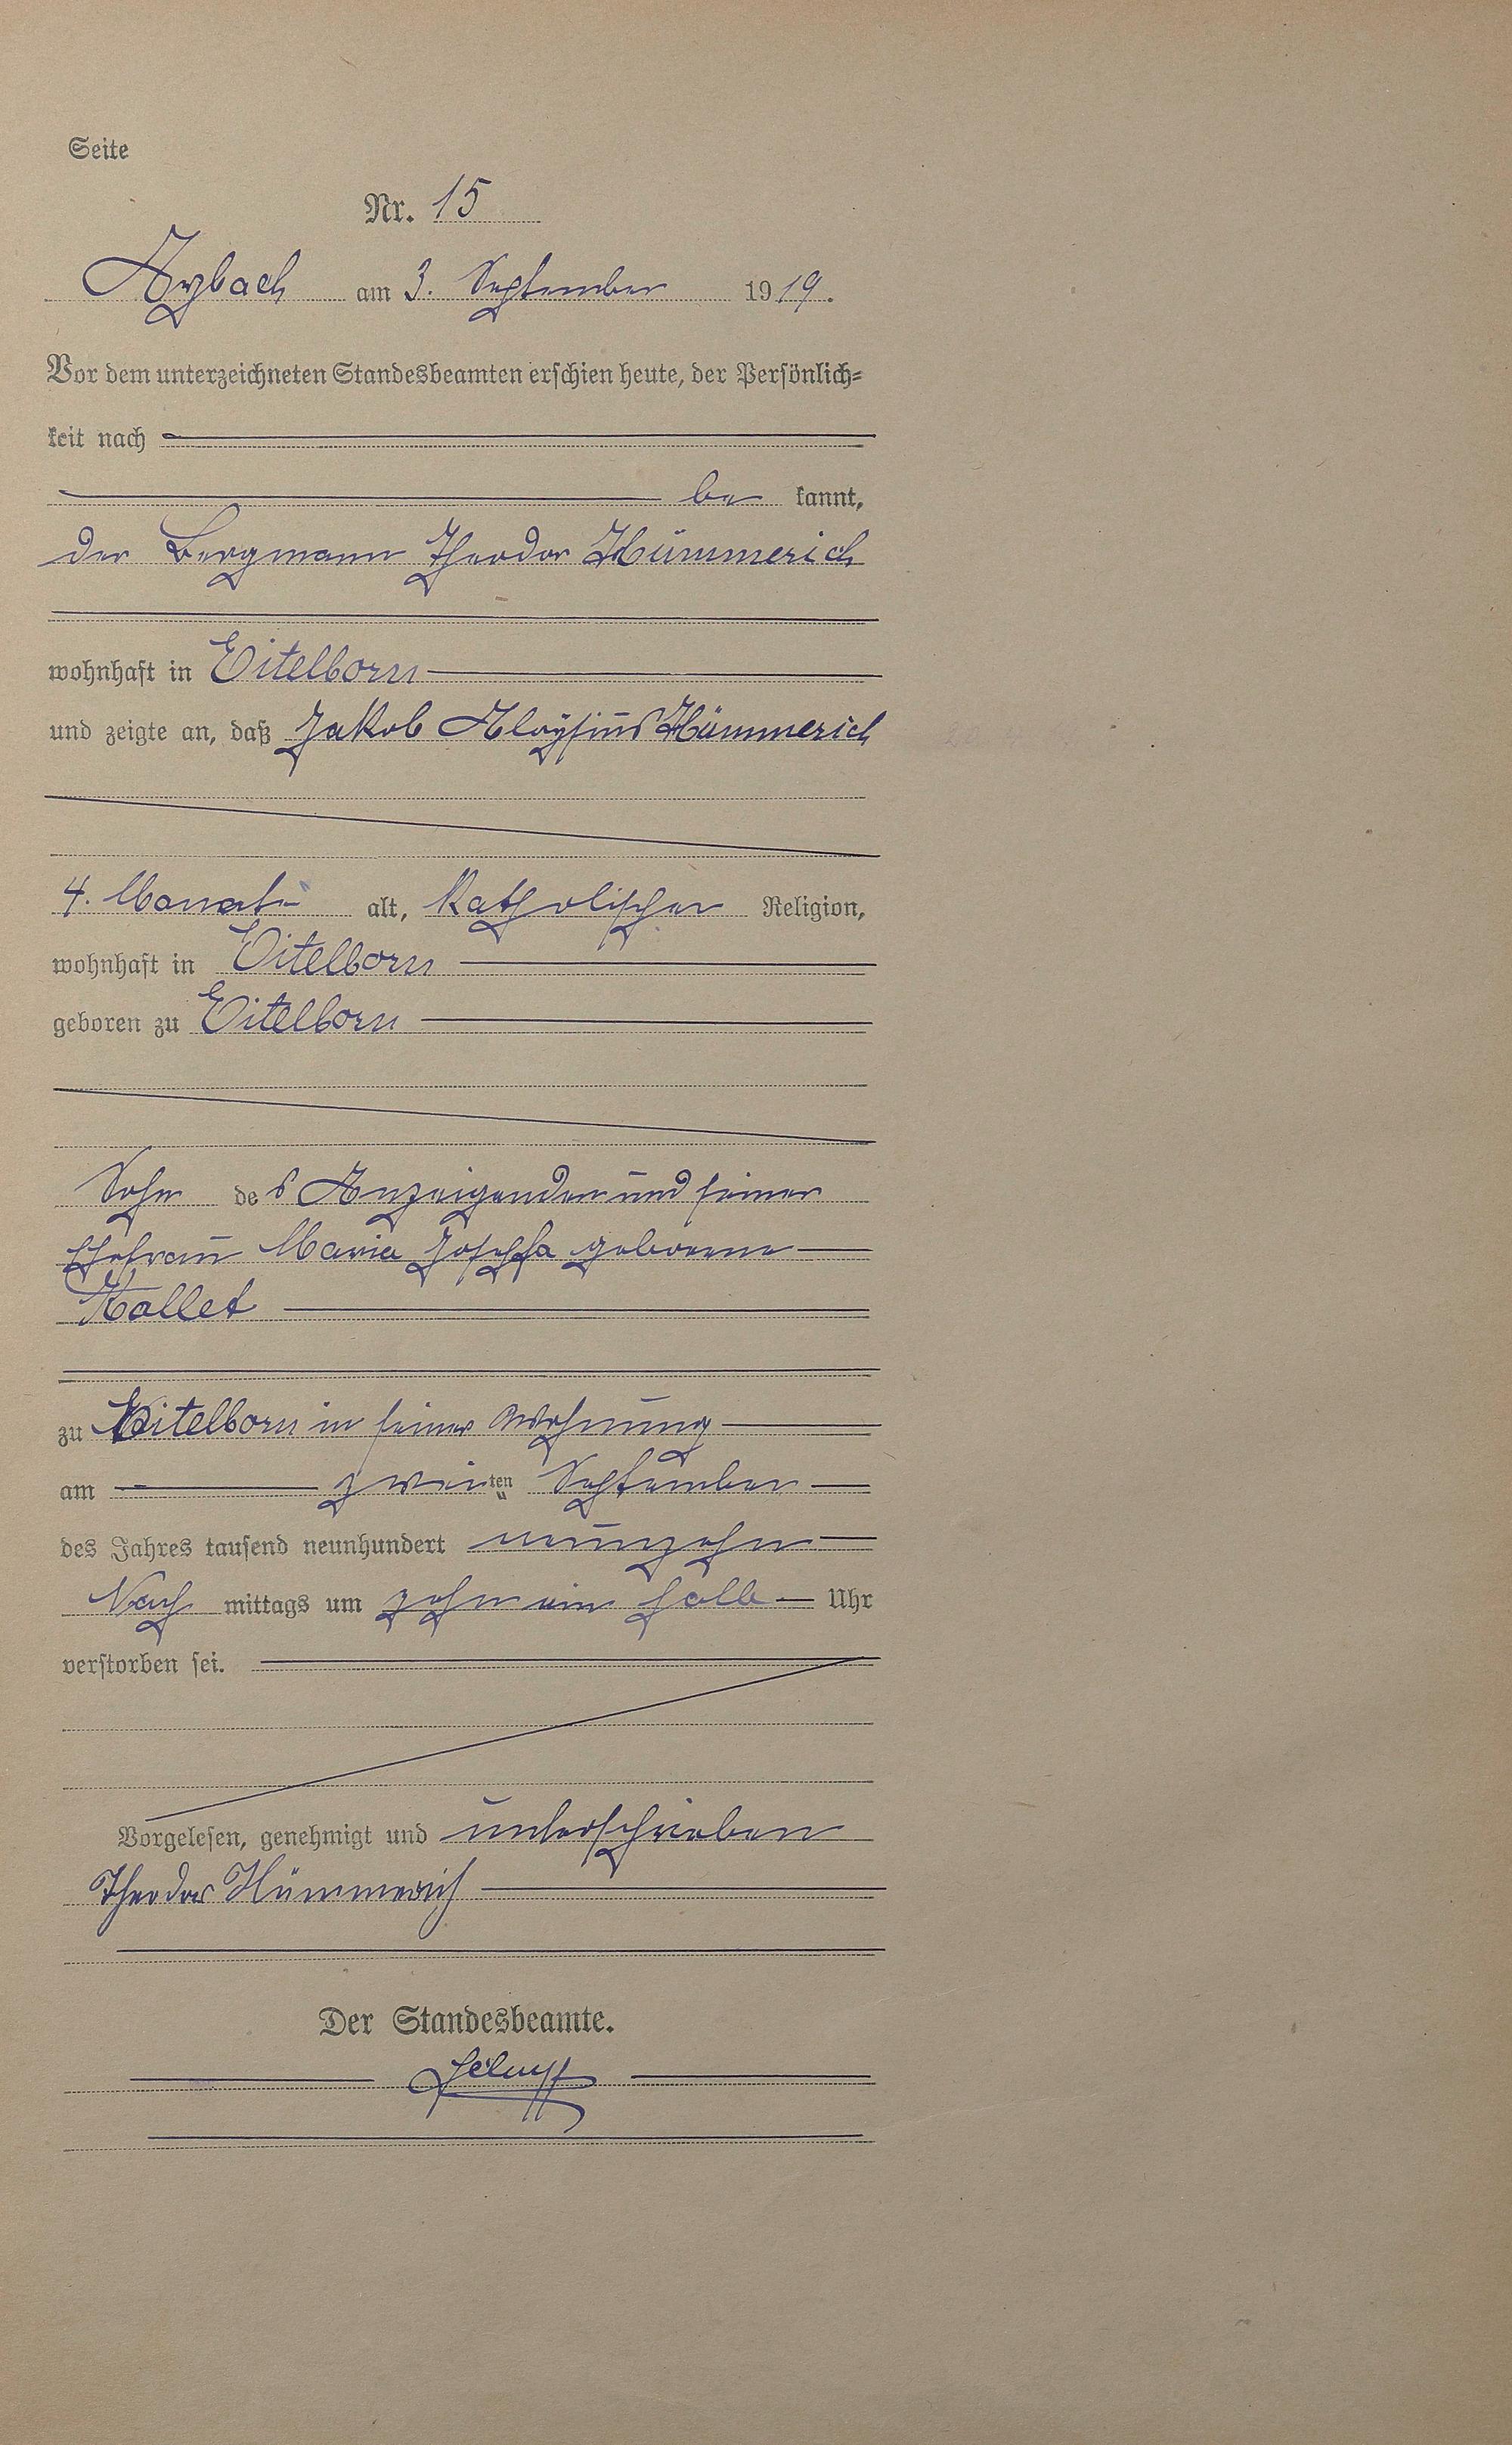 Seite
Nr. 15
Arzbach am 3. September 1919.
Vor dem unterzeichneten Standesbeamten erschien heute, der Persönlich-
keit nach
be kannt,
der Bergmann Theodor Hümmerich
wohnhaft in Eitelborn
und zeigte an, daß Jakob Aloysius Hümmerich
4. Monate alt, katholischer Religion,
wohnhaft in Eitelborn
geboren zu Eitelborn
Sohn des Anzeigenden und seiner
Ehefrau Maria Josepha geborene
Kollet
zu Eitelborn in seiner Wohnung
am zweiten September
des Jahres tausend neunhundert neunzehn
Nach mittags um zehn ein halb Uhr
verstorben sei.
Vorgelesen, genehmigt und unterschrieben
Theodor Hümmerich
Der Standesbeamte.